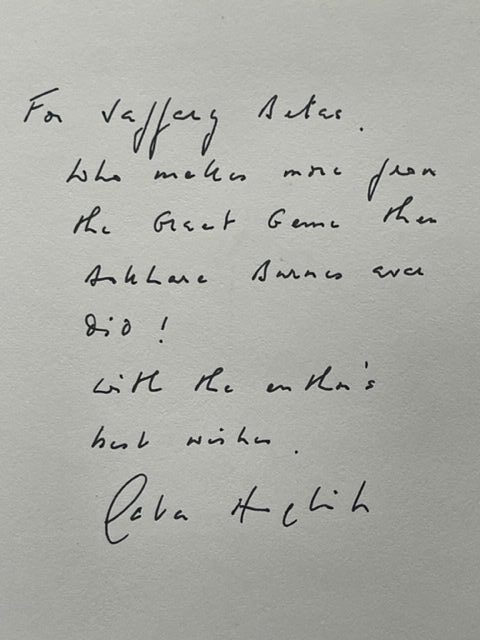 For Jeffery Bates.
Who makes more from
the Great Game than
Bokhara Burnes ever
did!
With the author's
best wishes.
Peter Hopkirk